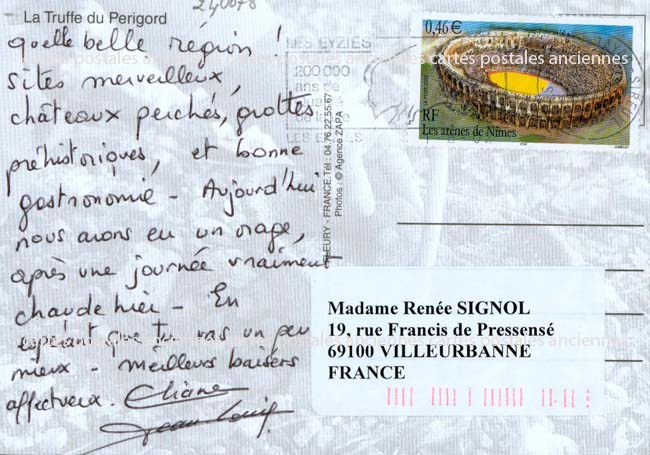 240078
La Truffe du Perigord
quelle belle région !
sites merveilleux,
châteaux perchés, grottes
préhistoriques, et bonne
gastronomie - Aujourd'hui
nous avons eu un orage,
après une journée vraiment
chaude hier - En
espérant que tu vas un peu
mieux - meilleurs baisers
affectueux. Eliane
Jean Louis
LES EYZIES
200 000
ans de
LES EYZIES
0,46 €
RF
Les arènes de Nîmes
cartes postales anciennes cartes postales anciennes cartes postales anciennes
FLEURY - FRANCE.Tél : 04.76.22.55.67
Photos : © Agence ZAPA
Madame Renée SIGNOL
19, rue Francis de Pressensé
69100 VILLEURBANNE
FRANCE
cartes postales anciennes cartes postales anciennes cartes postales anciennes